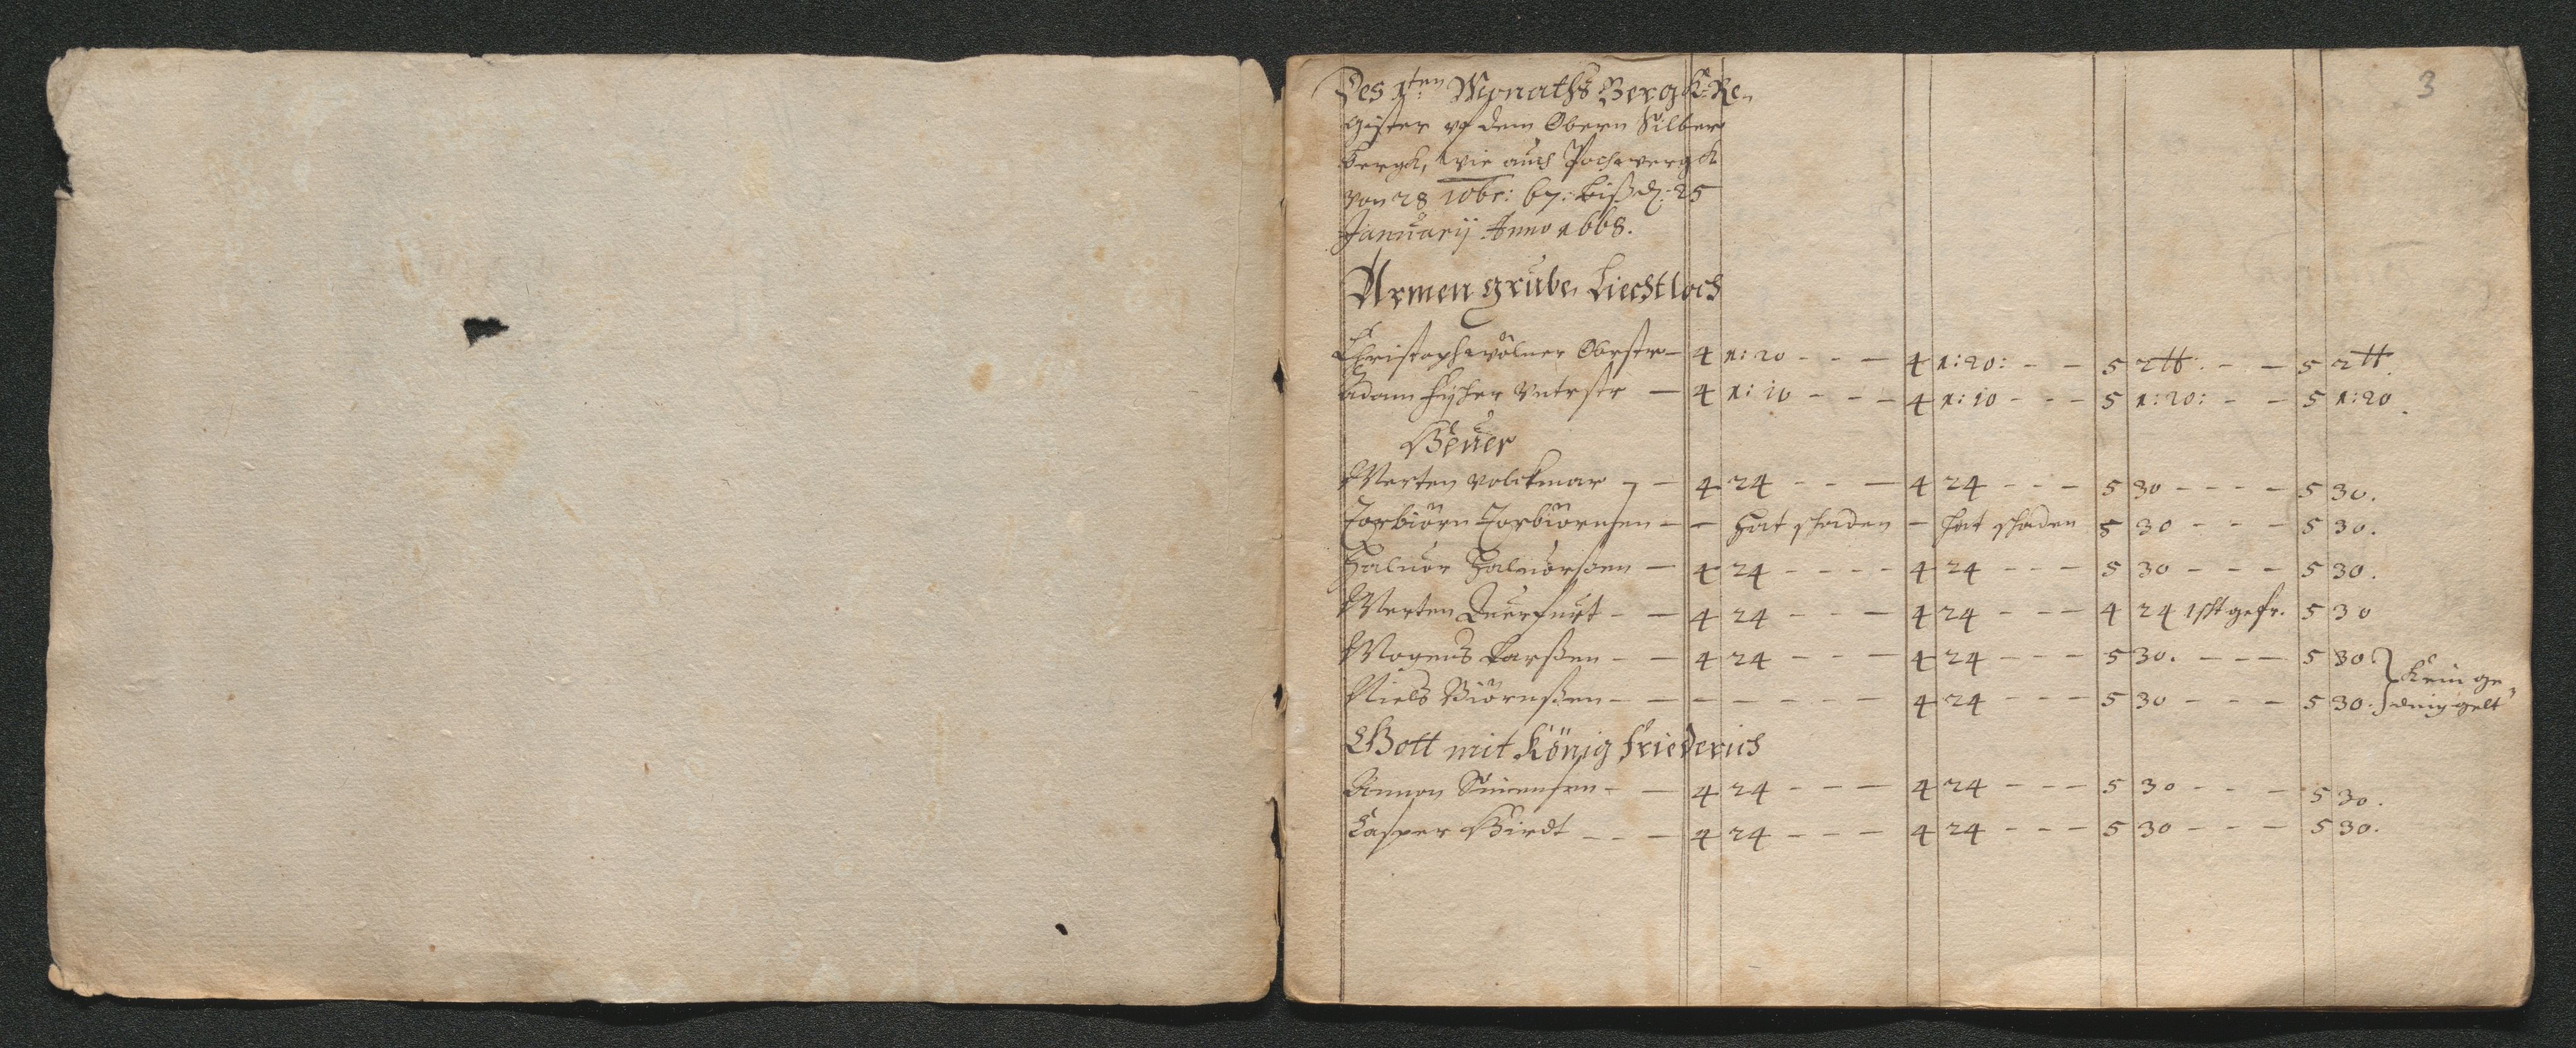 3
Des 1ten Monaths Bergk Re-
gister vf dem Obern Silber
bergk, wie auch Pochwergk
von 28 10br: 67: biß d. 25
Januarij Anno 1668.
Armen grube, Liechtloch
Christoph Wölner Obrstr — 4 1:20 - - — 4 1:20: - - 5 2 - - — 5 2
Adam Fischer Vntrstr — 4 1:10 - - — 4 1:10 - - - 5 1:20: - - 5 1:20.
Heuer
Merten Volckmar — 4 24 - - — 4 24 - - - 5 30 - - - — 5 30.
Torbiörn Torbiörnsen - — hat schaden — hat schaden 5 30 - - - 5 30.
Haluor Haluorsen — 4 24 - - - - 4 24 - - - 5 30 - - - 5 30.
Merten Querfurt - — 4 24 - - — 4 24 - - — 4 24 1 scht gefr. 5 30
Mogens Larßen - — 4 24 - - — 4 24 - - - 5 30. - - — 5 30. } Kein ge-
Niels Biörnßen - - - - - - — 4 24 - - - 5 30 - - - 5 30. } dinggelt
Gott mit König Friederich
Simensen - — 4 24 - - — 4 24 - - — 5 30 - - - 5 30.
Casper Hirdt - - — 4 24 - - — 4 24 - - — 5 30 - - - 5 30.